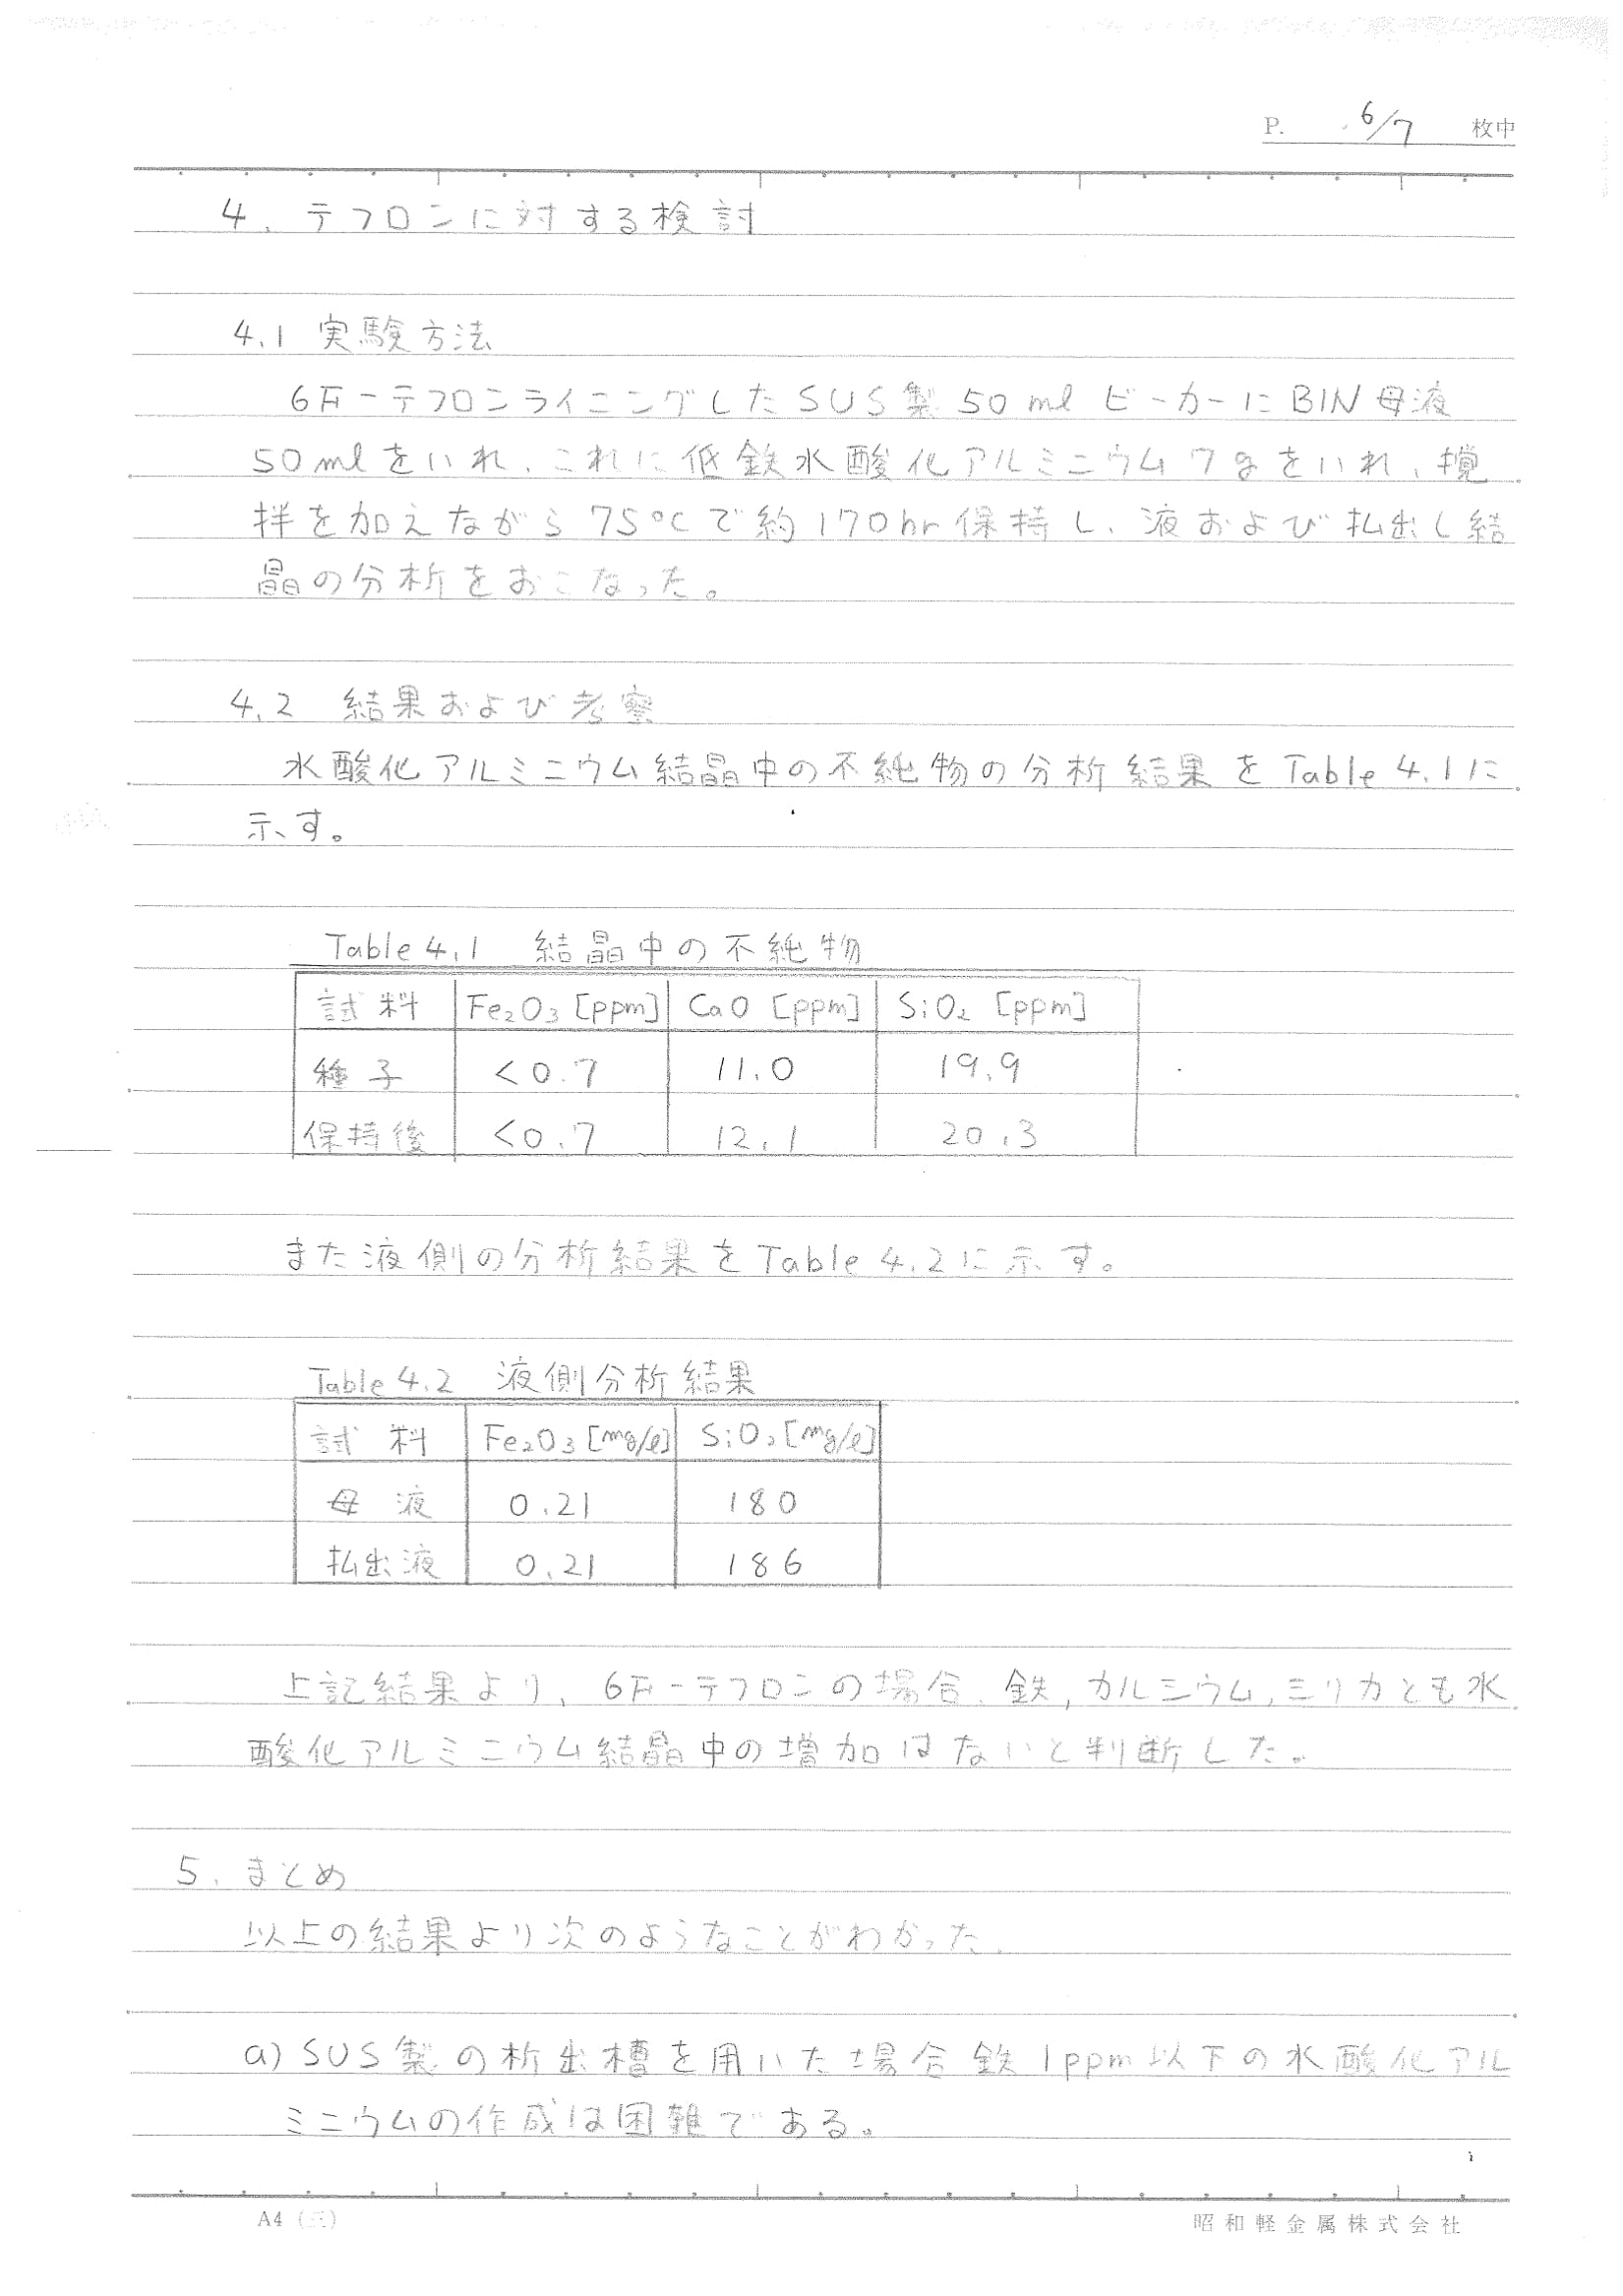 P. 6/7 枚中
4. テフロンに対する検討
4.1 実験方法
6F-テフロンライニングしたSUS製50mlビーカーにBIN母液
50mlをいれ、これに低鉄水酸化アルミニウム7gをいれ、攪
拌を加えながら75℃で約170hr保持し、液および払出し結
晶の分析をおこなった。
4.2 結果および考察
水酸化アルミニウム結晶中の不純物の分析結果をTable 4.1に
示す。
Table 4.1 結晶中の不純物
試料 Fe₂O₃ [ppm] CaO [ppm] SiO₂ [ppm]
種子 <0.7 11.0 19.9
保持後 <0.7 12.1 20.3
また液側の分析結果をTable 4.2に示す。
Table 4.2 液側分析結果
試料 Fe₂O₃ [mg/l] SiO₂ [mg/l]
母液 0.21 180
払出液 0.21 186
上記結果より、6F-テフロンの場合、鉄,カルシウム,シリカとも水
酸化アルミニウム結晶中の増加はないと判断した。
5. まとめ
以上の結果より次のようなことがわかった.
a) SUS製の析出槽を用いた場合鉄1ppm以下の水酸化アル
ミニウムの作成は困難である。
A4 (三)
昭和軽金属株式会社